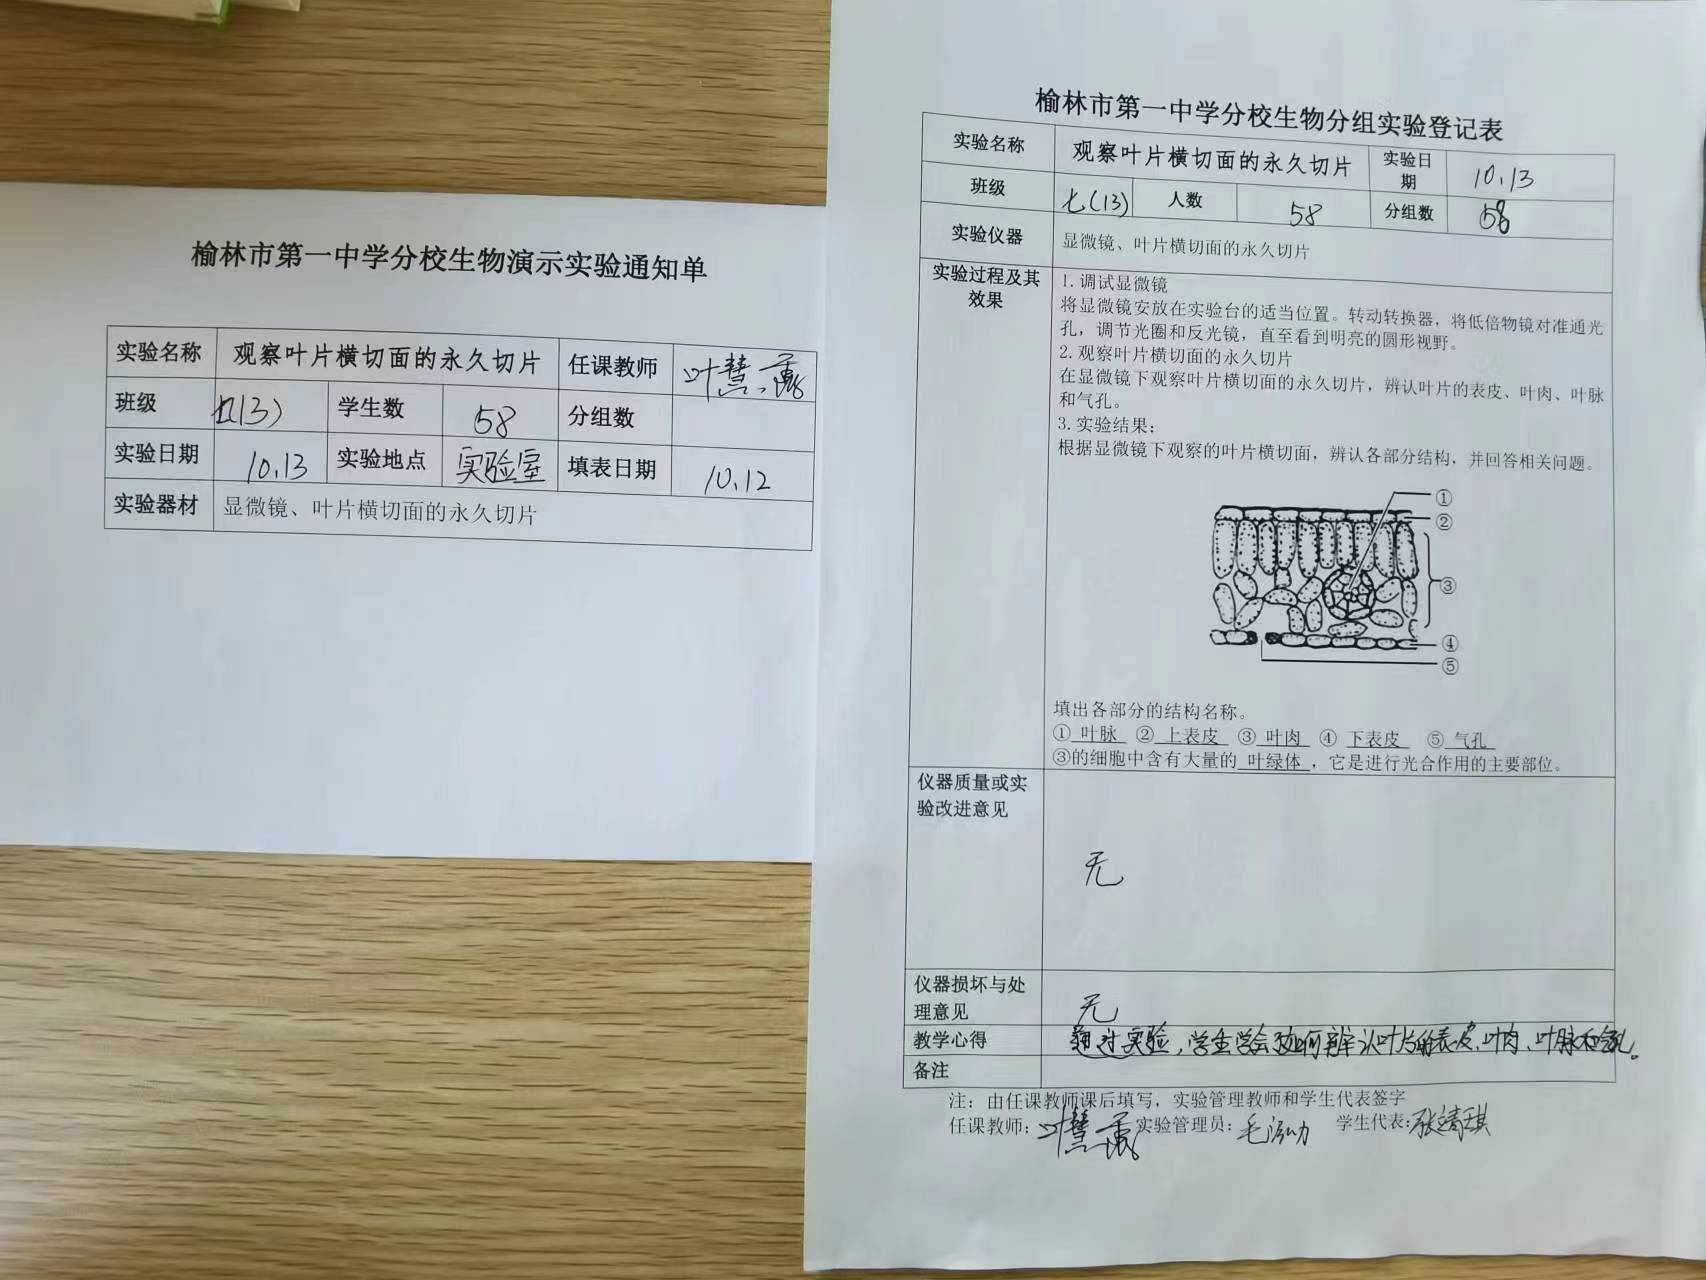 榆林市第一中学分校生物演示实验通知单
实验名称 观察叶片横切面的永久切片 任课教师 叶慧
班级 七(13) 学生数 58 分组数
实验日期 10.13 实验地点 实验室 填表日期 10.12
实验器材 显微镜、叶片横切面的永久切片
榆林市第一中学分校生物分组实验登记表
实验名称 观察叶片横切面的永久切片 实验日期 10.13
班级 七(13) 人数 58 分组数 58
实验仪器 显微镜、叶片横切面的永久切片
实验过程及其效果
1.调试显微镜
将显微镜安放在实验台的适当位置。转动转换器，将低倍物镜对准通光
孔，调节光圈和反光镜，直至看到明亮的圆形视野。
2.观察叶片横切面的永久切片
在显微镜下观察叶片横切面的永久切片，辨认叶片的表皮、叶肉、叶脉
和气孔。
3.实验结果：
根据显微镜下观察的叶片横切面，辨认各部分结构，并回答相关问题。
①
②
③
④
⑤
填出各部分的结构名称。
① 叶脉 ② 上表皮 ③ 叶肉 ④ 下表皮 ⑤ 气孔
③的细胞中含有大量的 叶绿体 ，它是进行光合作用的主要部位。
仪器质量或实验改进意见 无
仪器损坏与处理意见 无
教学心得 通过实验，学生学会如何辨认叶片的表皮、叶肉、叶脉和气孔。
备注
注：由任课教师课后填写，实验管理教师和学生代表签字
任课教师：叶慧 实验管理员：毛 学生代表：张靖琪